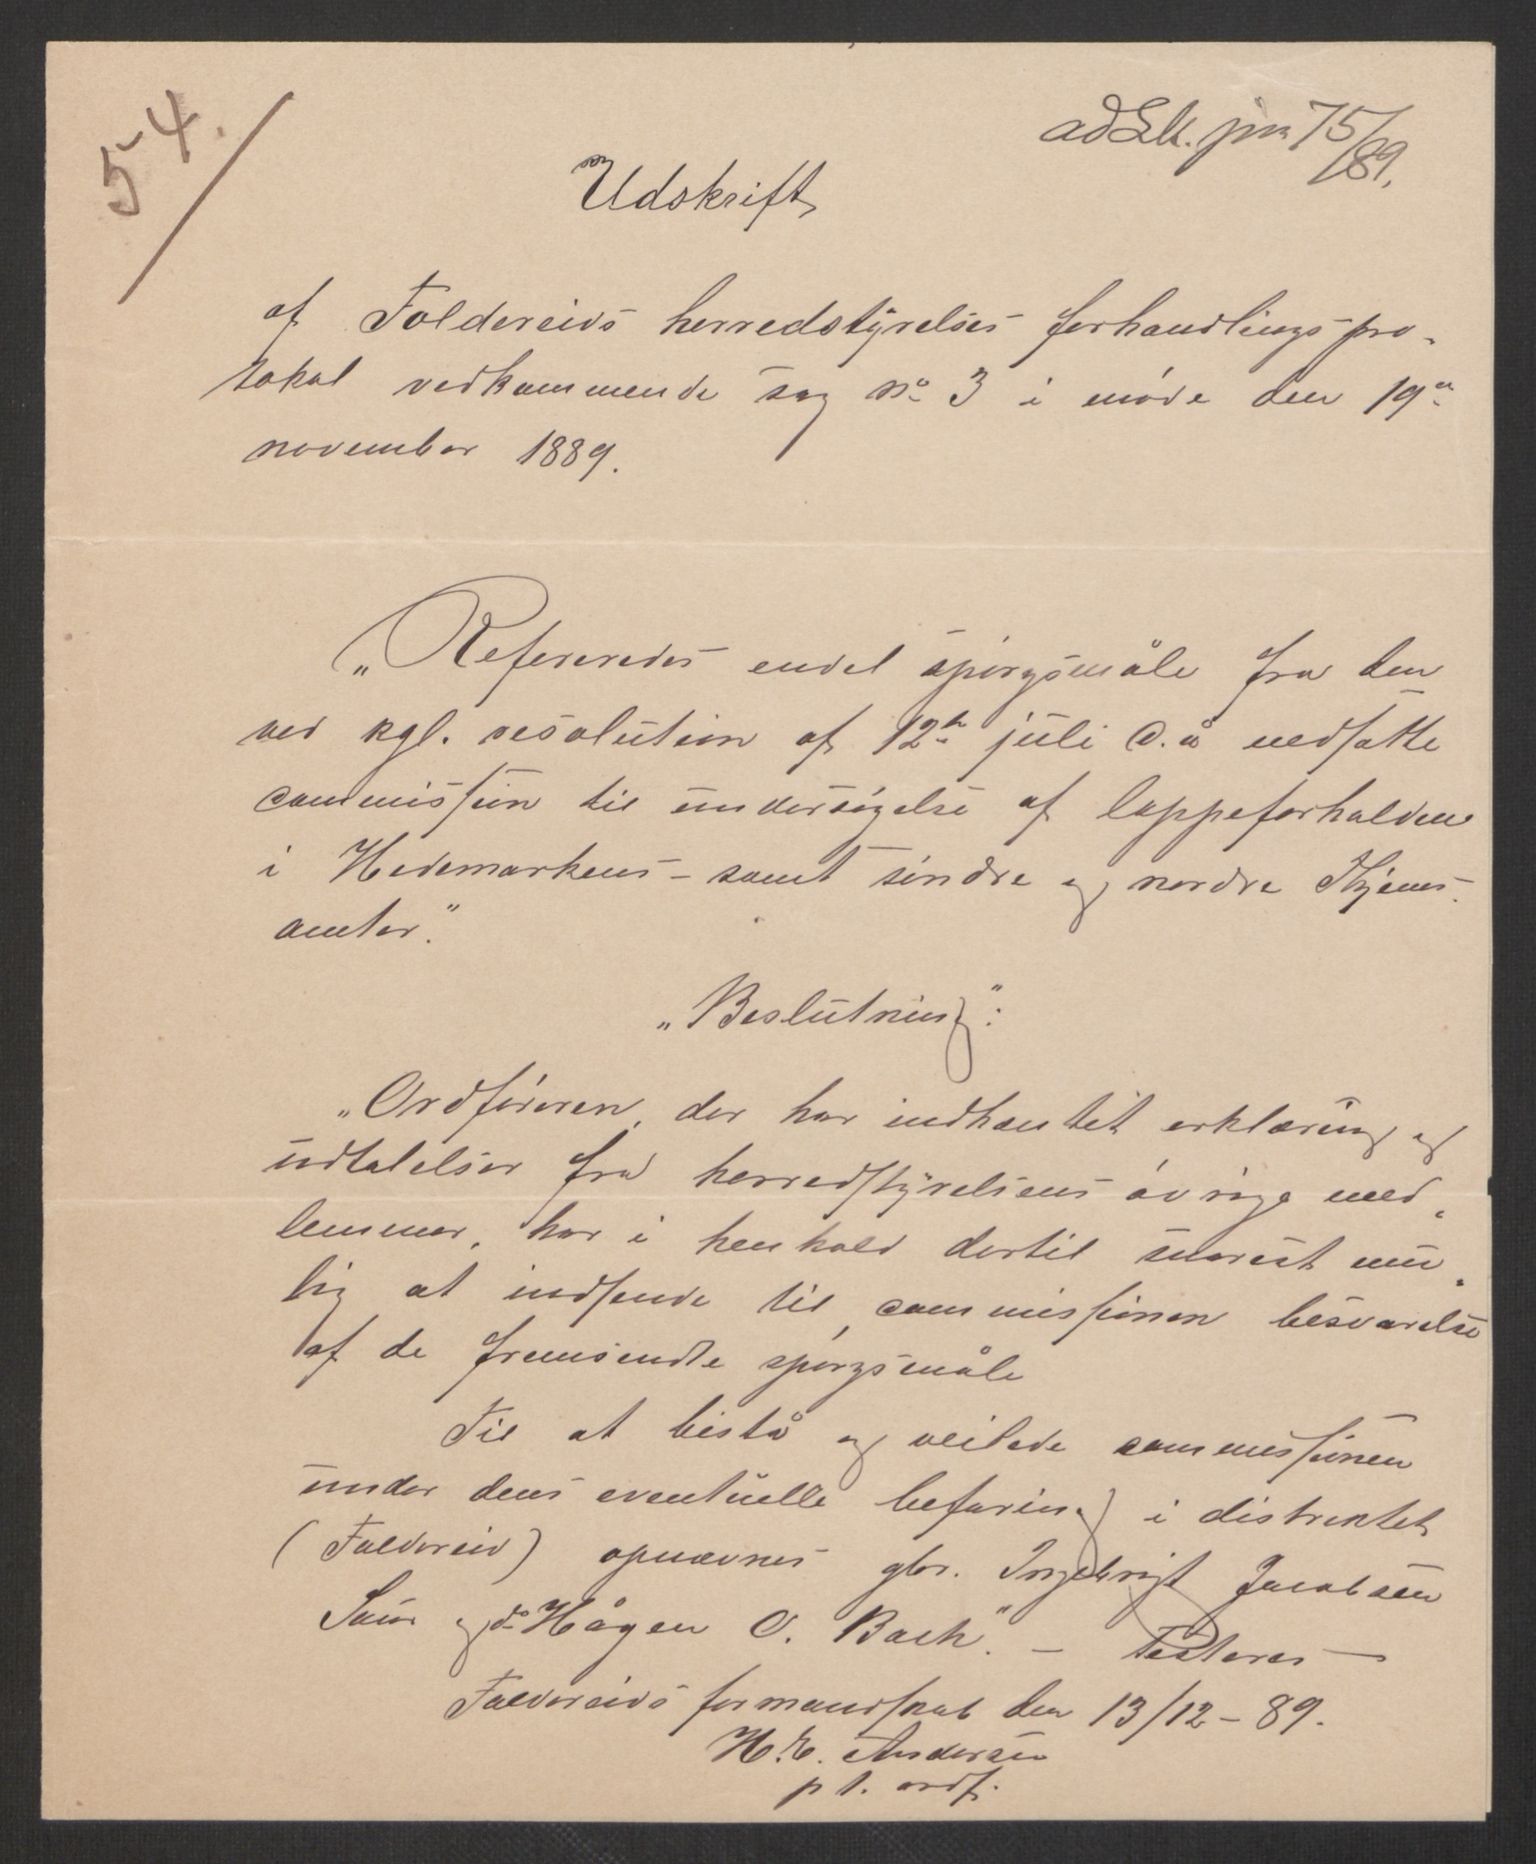 54.
ad Lk. jnr 75/89.
Udskrift
af Foldereids herredstyrelses forhandlingspro-
tokol vedkommende sag No 3 i møde den 19de
november 1889.
„Refereredes endel spørgsmåle fra den
ved kgl. resolution af 12te juli d.å nedsatte
commission til undersøgelse af lappeforholdene
i Hedemarkens - samt søndre og nordre Thjems
amter."
„Beslutning":
„Ordføreren, der har indhentet erklæring og
udtalelser fra herredstyrelsens øvrige med-
lemmer, har i henhold dertil snarest mu-
lig at indsende til commissionen besvarelse
af de fremsendte spørgsmåle
Til at bistå og veilede commissionen
under dens eventuelle befaring i distriktet
(Foldereid) opnævnes gbr. Ingebrigt Jacobsen
og do Hågen C. Bach". - Testeres -
Foldereids formandskab den 13/12 - 89.
H. E. Andersen
p t. ordf.